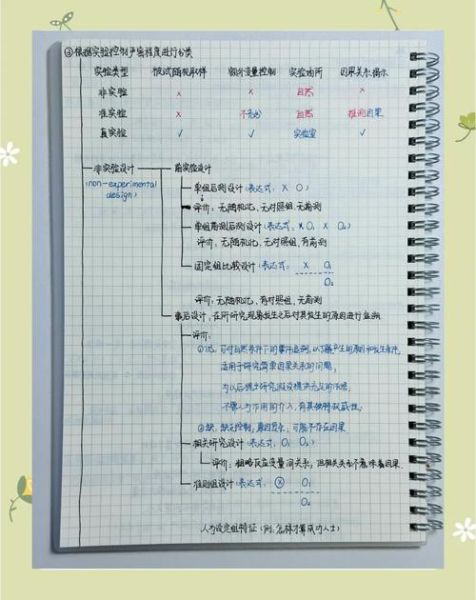 ③依据实验控制严密程度进行分类
实验类型 被试随机取样 额外变量控制 实验场所 因果关系揭示
非实验 × × 自然 ×
准实验 × 不充分 自然 推测因果
真实验 ✓ ✓ 实验室 ✓
非实验设计 前实验设计
(non-experimental
design)
单组后测设计(表达式: X O)
评价:无随机化、无对照组、无前测
单组前测后测设计(表达式: O₁ X O₂)
评价:无随机化、无对照组、有前测
固定组比较设计(表达式: X O₁
O₂
评价:无随机化、有对照组、无前测
事后设计、在所研究现象发生之后对其发生的原因进行追溯
评价:
①优,可对自然条件下的事件追溯,以了解产生的原因和发生条件
适用于研究简单因果关系的问题,
为以后提出研究假设提供充足的依据,
不需人为作用的介入,有其独特权威性。
②缺,缺乏控制,原因复杂,可能不存在因果
相关研究设计(表达式: O₁ O₂)
评价:粗略反应变量间关系,但相关关系不意味着因果
准则组设计(表达式: Ⓧ O₁
O₂
人为设定组特征(例:怎样才算成功人士)